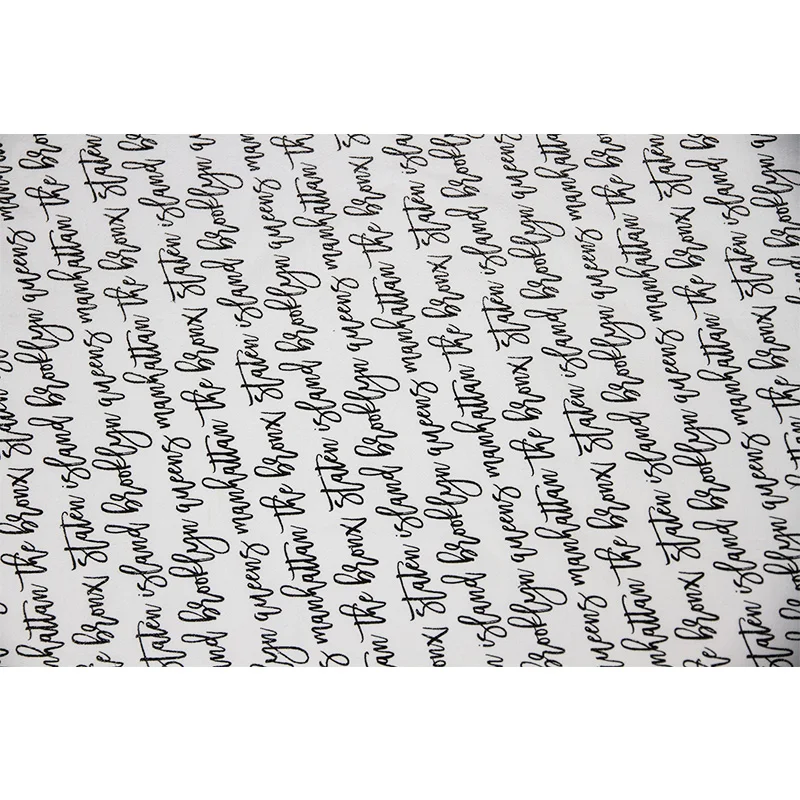 manhattan the bronx staten
the bronx staten island brooklyn queens
staten island brooklyn queens manhattan the
brooklyn queens manhattan the bronx staten
queens manhattan the bronx staten island
manhattan the bronx staten island brooklyn
the bronx staten island brooklyn queens
bronx staten island brooklyn queens manhattan the
island brooklyn queens manhattan the bronx
brooklyn queens manhattan the bronx staten island
queens manhattan the bronx staten island brooklyn
manhattan the bronx staten island brooklyn queens
the bronx staten island brooklyn queens manhattan
staten island brooklyn queens manhattan the bronx
brooklyn queens manhattan the bronx staten